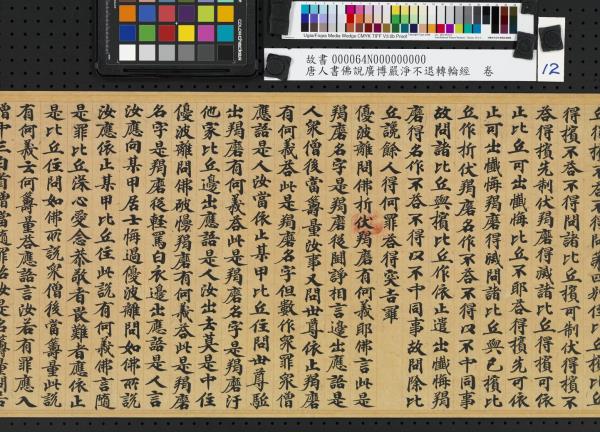 Ugra/Fogra Media Wedge CMYK TIFF V3.0b Proof
故書 000064N000000000
唐人書佛說廣博嚴淨不退轉輪經 卷
12
得擯不答不得問諸比丘擯可制伏得擯不
答得擯先制伏羯磨得滅諸比丘得擯可依
止比丘可出懺悔比丘不耶答得擯先可依
止可出懺悔羯磨得滅問諸比丘與已擯比
丘作折伏羯磨名作不答不得以不中同事
故問諸比丘與擯比丘作依止遣出懺悔羯
磨得名作不答不得以不中同事故問除比
丘謗餘人得何罪答得突吉羅
優波離問佛折羯磨有何義耶佛言此是
羯磨名字是羯磨後鬪諍相言邊出應語是
人眾僧後當籌量汝事又問世尊依止羯磨
有何義答此是羯磨名字但數作眾罪眾僧
應語是人汝當依止某甲比丘住問世尊驅
出羯磨有何義答此是羯磨名字是羯磨汙
他家比丘邊出應語是人汝出去莫是中住
優波離問佛破慢羯磨有何義答此是羯磨
名字是羯磨後輕罵白衣邊出應語是人言
汝應向某甲居士悔過優波離問如佛所說
汝應依止某甲比丘住此說有何義佛言隨
是罪比丘深心愛念恭敬者畏難者應依止
是比丘住問如佛所說眾僧後當籌量此說
有何義云何籌量答應語言汝若有罪應入